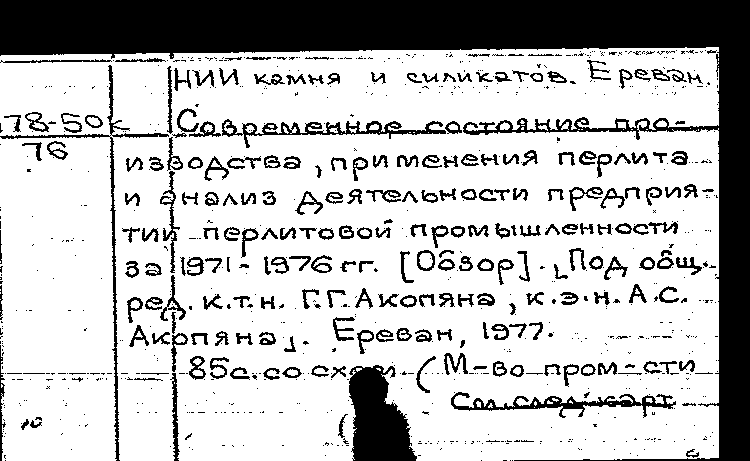 НИИ камня и силикатов. Ереван.
78-50к
76
Современное состояние про-
изводства, применения перлита
и анализ деятельности предприя-
тий перлитовой промышленности
за 1971-1976 гг. [Обзор]. Под общ.
ред. к.т.н. Г.Г. Акопяна, к.э.н. А.С.
Акопяна. Ереван, 1977.
85с. со схем. (М-во пром-сти
См. след. карт